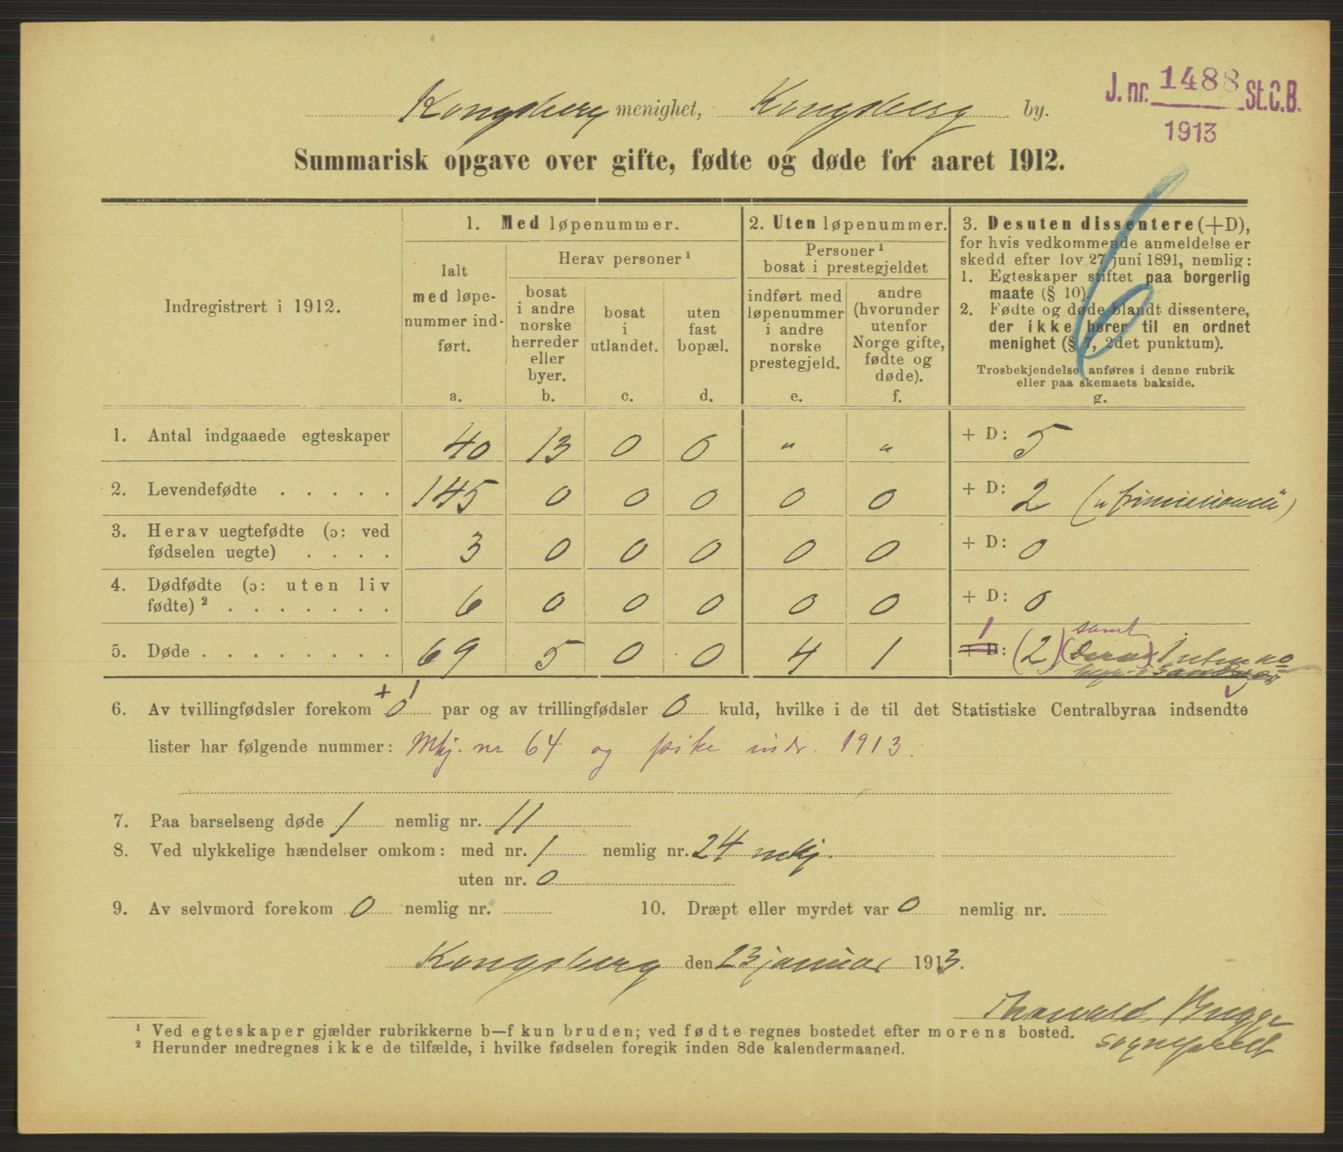 Kongsberg menighet, Kongsberg by.
J. nr. 1488 St.C.B.
1913
Summarisk opgave over gifte, fødte og døde for aaret 1912.
Indregistrert i 1912.
1. Med løpenummer.
Ialt
med løpe-
nummer ind-
ført.
a.
Herav personer ¹
bosat
i andre
norske
herreder
eller
byer.
b.
bosat
i
utlandet.
c.
uten
fast
bopæl.
d.
2. Uten løpenummer.
Personer ¹
bosat i prestegjeldet
indført med
løpenummer
i andre
norske
prestegjeld.
e.
andre
(hvorunder
utenfor
Norge gifte,
fødte og
døde).
f.
3. Desuten dissentere (+D),
for hvis vedkommende anmeldelse er
skedd efter lov 27 juni 1891, nemlig:
1. Egteskaper stiftet paa borgerlig
maate (§ 10).
2. Fødte og døde blandt dissentere,
der ikke hører til en ordnet
menighet (§ 7, 2det punktum).
Trosbekjendelse anføres i denne rubrik
eller paa skemaets bakside.
g.
6
1. Antal indgaaede egteskaper 40 13 0 0 " " + D: 5
2. Levendefødte . . . . . 145 0 0 0 0 0 + D: 2
3. Herav uegtefødte (ɔ: ved
fødselen uegte) . . . . 3 0 0 0 0 0 + D: 0
4. Dødfødte (ɔ: uten liv
født​e) ² . . . . . . . 6 0 0 0 0 0 + D: 0
5. Døde . . . . . . . . 69 5 0 0 4 1 + D: 1 (2) samt
6. Av tvillingfødsler forekom + 0 1 par og av trillingfødsler 0 kuld, hvilke i de til det Statistiske Centralbyraa indsendte
lister har følgende nummer: Mkj. nr 64 og pike indr. 1913.
7. Paa barselseng døde 1 nemlig nr. 11
8. Ved ulykkelige hændelser omkom: med nr. 1 nemlig nr. 24 mkj.
uten nr. 0
9. Av selvmord forekom 0 nemlig nr. 10. Dræpt eller myrdet var 0 nemlig nr.
Kongsberg den 23 januar 1913.
Thorvald Bugge
sogneprest
¹ Ved egteskaper gjælder rubrikkerne b—f kun bruden; ved fødte regnes bostedet efter morens bosted.
² Herunder medregnes ikke de tilfælde, i hvilke fødselen foregik inden 8de kalendermaaned.